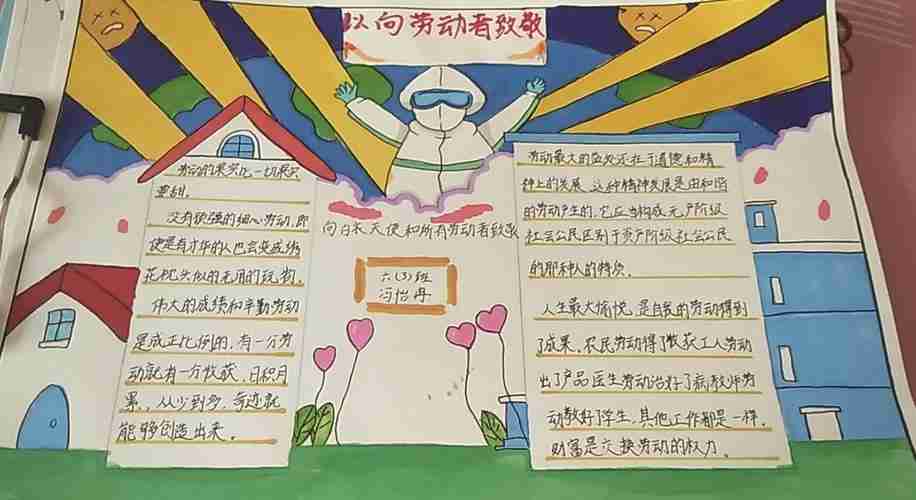 以向劳动者致敬
劳动的果实比一切果实
更甜。
没有顽强的细心劳动,即
使是有才华的人也会变成绣
花枕头似的无用的玩物。
伟大的成绩和辛勤劳动
是成正比例的,有一分劳
动就有一分收获,日积月
累,从少到多,奇迹就
能够创造出来。
向白衣天使和所有劳动者致敬
六(3)班
冯怡冉
劳动最大的益处还在于道德和精
神上的发展,这种精神发展是由和谐
的劳动产生的,它应当构成无产阶级
社会公民区别于资产阶级社会公民
的那种人的特质。
人生最大愉悦,是自我的劳动得到
了成果。农民劳动得了收获,工人劳动
出了产品,医生劳动治好了病,教师劳
动教好了学生,其他工作都是一样。
财富是交换劳动的权力。